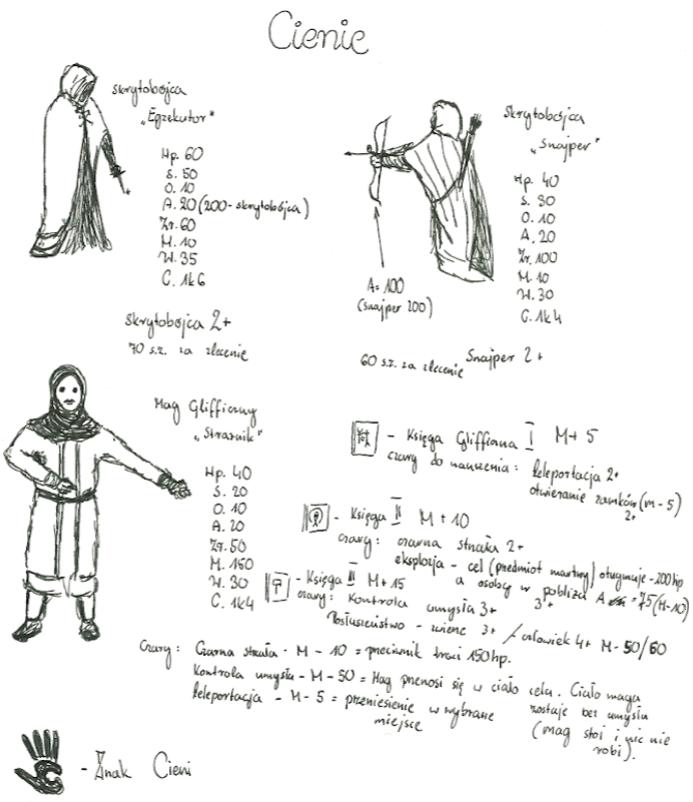 Cienie
Skrytobójca
„Egzekutor"
Hp. 60
S. 50
O. 10
A. 20 (200 - skrytobójca)
Zr. 60
M. 10
W. 35
C. 1k6
Skrytobójca 2+
70 s.z. za zlecenie
Skrytobójca
„Snajper"
Hp. 40
S. 30
O. 10
A. 20
Zr. 100
M. 10
W. 30
C. 1k4
A= 100
(snajper 200)
Snajper 2+
60 s.z. za zlecenie
Mag Glificzny
„Strażnik"
Hp. 40
S. 20
O. 10
A. 20
Zr. 50
M. 150
W. 30
C. 1k4
- Księga Glifficzna I M+ 5
czary do nauczenia: teleportacja 2+
otwieranie zamków (M-5)
2+
- Księga II M + 10
czary: czarna strzała 2+
eksplozja - cel (przedmiot martwy) otrzymuje -200hp
a osoby w pobliżu A = 75 (M-10)
3+
- Księga III M+15
czary: Kontrola umysłu 3+
Posłuszeństwo - zwierz 3+ / człowiek 4+ M-50/60
Czary: Czarna strzała - M - 10 = przeciwnik traci 150 hp.
Kontrola umysłu - M - 50 = Mag przenosi się w ciało celu. Ciało maga
zostaje bez umysłu
(mag stoi i nic nie
robi).
teleportacja - M - 5 = przeniesienie w wybrane
miejsce
- Znak Cieni